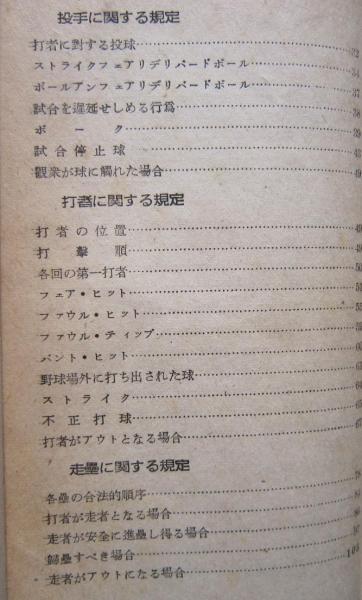 投手に関する規定
打者に對する投球……32
ストライクフェアリデリバードボール……34
ボールアンフェアリデリバードボール……37
試合を遅延せしめる行爲……38
ボーク……39
試合停止球……43
觀衆が球に觸れた場合……
打者に関する規定
打者の位置……
打擊順……
各回の第一打者……
フェア・ヒット……
ファウル・ヒット……
ファウル・ティップ……
バント・ヒット……
野球場外に打ち出された球……
ストライク……
不正打球……
打者がアウトとなる場合……
走壘に関する規定
各壘の合法的順序……
打者が走者となる場合……
走者が安全に進壘し得る場合……
歸壘すべき場合……
走者がアウトになる場合……